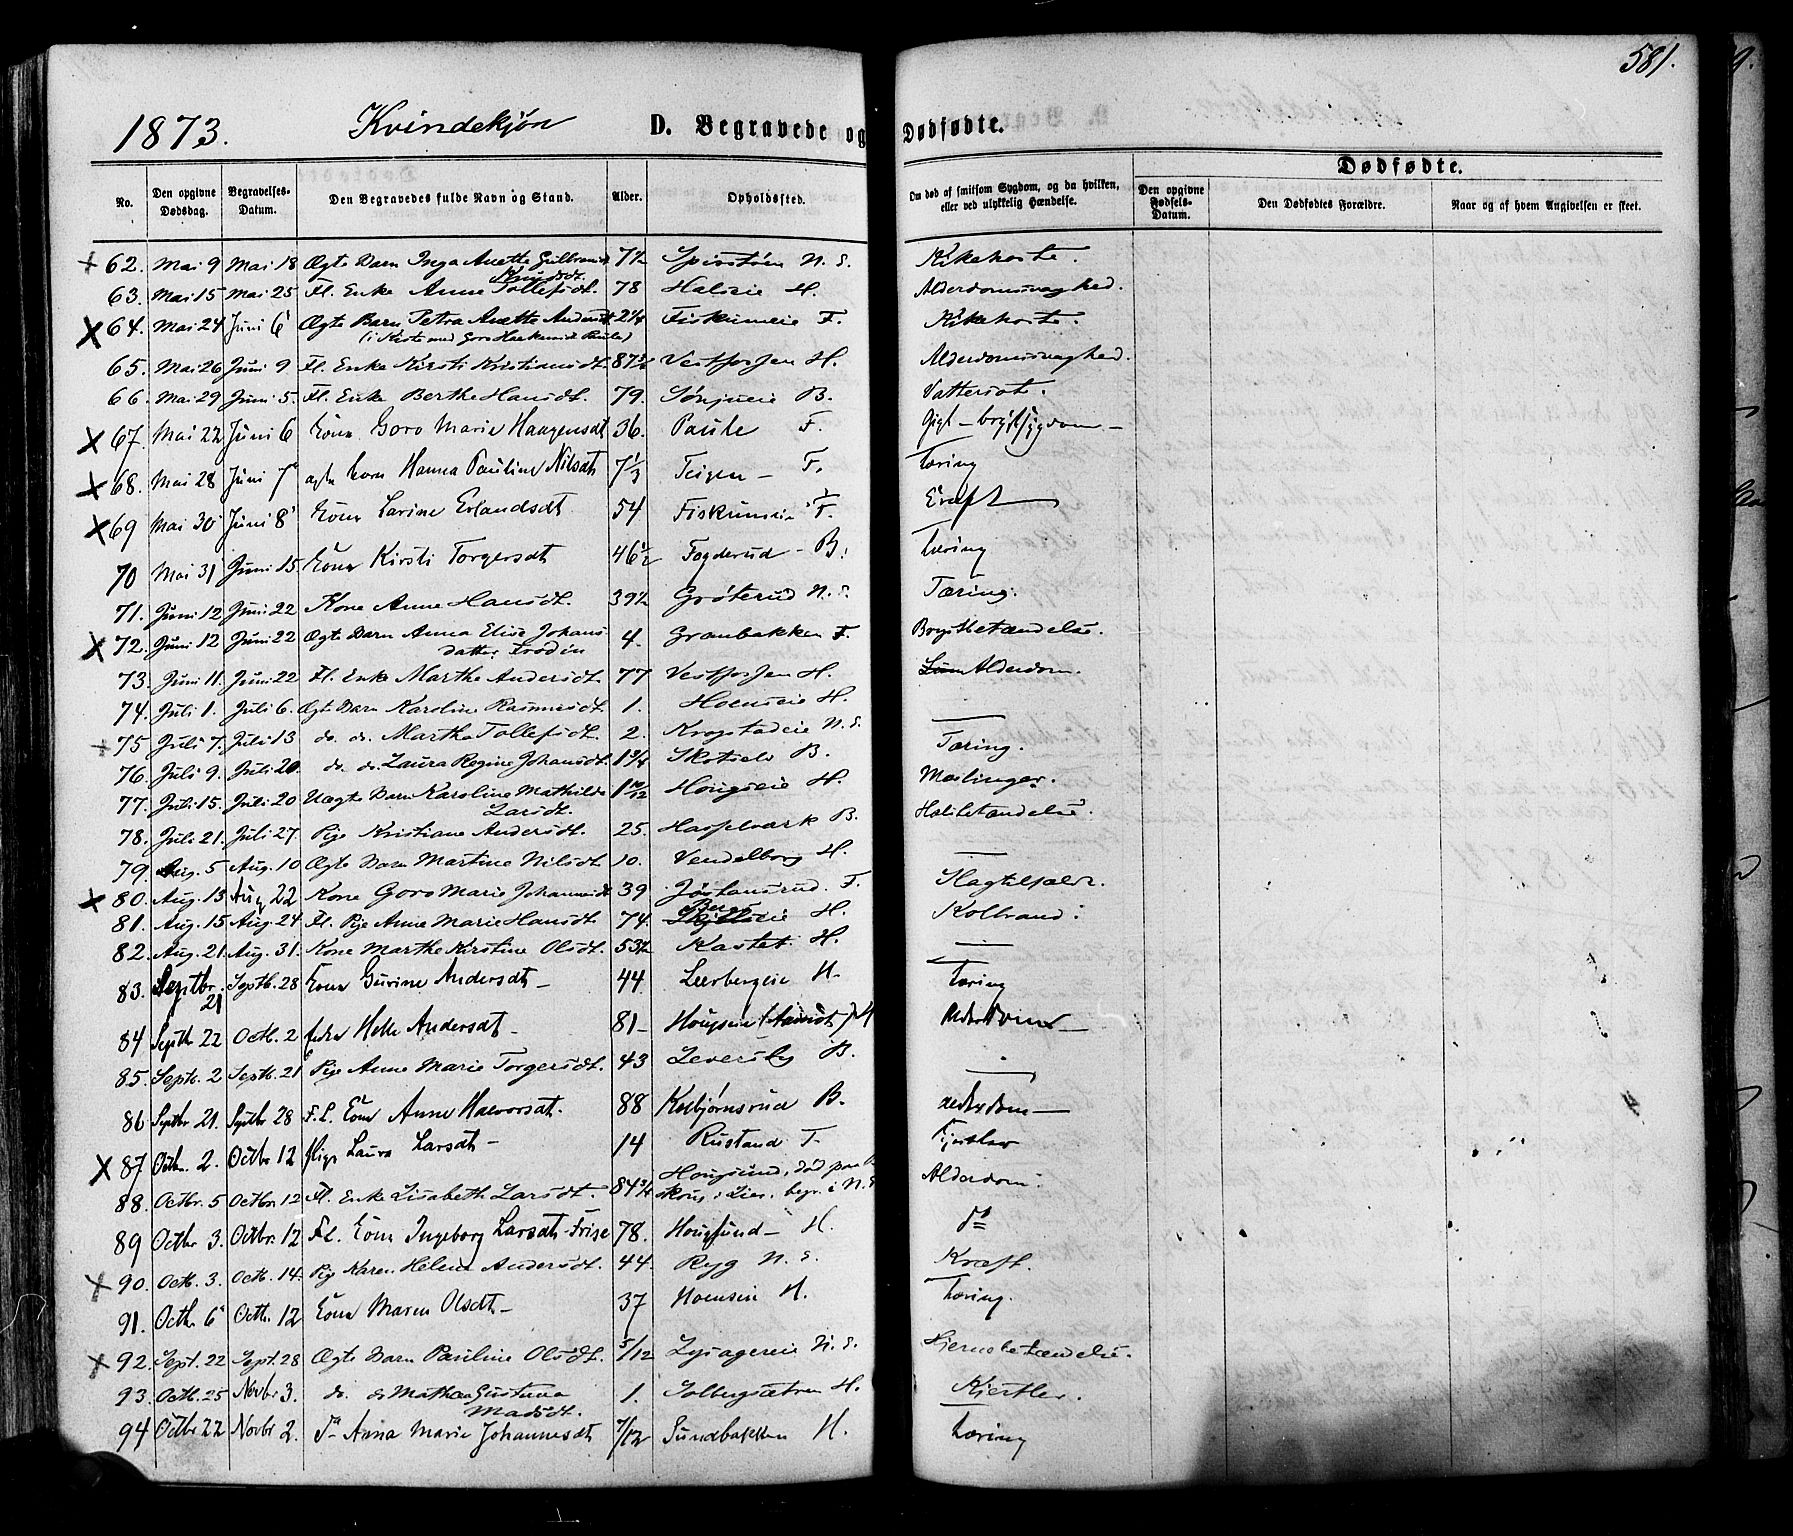 581.
1873. Kvindekjøn D. Begravede og Dødfødte.
Dødfødte.
No. Den opgivne Dødsdag. Begravelses-Datum. Den Begravedes fulde Navn og Stand. Alder. Opholdssted. Om død af smitsom Sygdom, og da hvilken, eller ved ulykkelig Hændelse. Den opgivne Fødsels-Datum. Den Dødfødtes Forældre. Naar og af hvem Angivelsen er skeet.
62. Mai 9 Mai 18 Ægte Barn Inga Anette Gulbrandsdt. 7½ N. E. Kikhoste.
63. Mai 15 Mai 25 Fl. Enke Anne Tollefsdt. Knudsdt. 78 Halseie H. Alderdomssvaghed.
64. Mai 24 Juni 6 Ægte Barn Petra Anette Andersdt. 2¼ Fiskumeie F. Kikhoste.
65. Mai 26 Juni 9 Fl. Enke Kirsti Kristiansdt. 87¾ Vestfossen H. Alderdomssvaghed.
66. Mai 29 Juni 5. Fl. Enke Berthe Hansdt. 79. B. Vattersot.
67. Mai 22 Juni 6 Kone Goro Marie Haagensdt 36. Paule F. Gigt – brystsygdom –
68. Mai 28 Juni 7 ægte barn Hanna Pauline Nilsdt 7⅓ Teigen – F. Tæring
69 Mai 30 Juni 8 Kone Larine Erlandsdt 54 Fiskumeie F. Kræft
70 Mai 31 Juni 15 Kone Kirsti Torgersdt 46½ Fogderud – B. Tæring
71. Juni 12 Juni 22 Kone Anne Hansdt. 39½ Grøterud N. E. Tæring.
72. Juni 12 Juni 22 Ægte Barn Anna Elise Johans 4. Granbakken F. Brystbetændelse.
datter Frodin
73. Juni 11. Juni 22 Fl. Enke Marthe Andersdt. 77 Vestfossen H. Alderdom.
74. Juli 1. Juli 6. Ægte Barn Karoline Rasmusdt. 1. Hoenseie H. —
75 Juli 7. Juli 13 do. do. Marthe Tollefsdt. 2. Krogstadeie N. E. Tæring.
76. Juli 9. Juli 20 do. do. Laura Regine Johansdt. 1¾ Skotselv B. Mæslinger.
77. Juli 15. Juli 20 Uægte Barn Karoline Mathilde 1 10/12 Hougseie H. Halsbetændelse.
Larsdt.
78. Juli 21. Juli 27. Pige Kristiane Andersdt. 25. Hasselværk B.
79. Aug. 5 Aug. 10 Ægte Barn Martine Nilsdt. 10. Vendelborg H. —
80. Aug. 13 Aug 22 Kone Goro Marie Johannesdt 39 Jøslansrud. F. Slagtilfælde.
81. Aug. 15 Aug. 24 Fl. Pige Anne Marie Hansdt. 74. H. Kolbrand.
82. Aug. 21. Aug. 31. Kone Marthe Kirstine Olsdt. 53½ Kastet H. —
83. Septbr. 21 Septb. 28 Kone Gurine Andersdt – 44 Leerbergeie H. Tæring
84 Septbr 22 Octb. 2 Enke Helle Andersdt – 81 – H Alderdom –
85. Septb. 2 Septb. 21 Pige Anne Marie Torgersdt. 43 Leversby B. —
86 Septbr 21. Septbr 28 F. L. Kone Anne Halvorsdt. 88 Kolbjørnsrud B. Alderdom –
87 Octbr. 2. Octbr 12 Pige Laura Larsdt – 14 Rustand F.
88. Octbr. 5 Octbr. 12 Fl. Enke Lisabeth Larsdt. 84¾ Hougsund, død paa Alderdom.
Skoug i Lier, begr. i N. E
89 Octbr 3. Octbr. 12 F. L. Kone Ingeborg Larsdt – Frise 78. Hougsund – H. do
90. Octb. 3. Octb. 14. Pige Karen Helene Andersdt. 44. Ryg N. E. Kræft.
91. Octbr 6 Octbr. 12 Kone Maren Olsdt – 37 Hoenseie H. Tæring.
92. Sept. 22 Sept. 28 Ægte Barn Pauline Olsdt. 5/12 Lysagereie N. E. Hjernebetændelse.
93. Octb. 25 Novbr 3. do. do Mathea Gustava 1. Solbergsætren H. Kjertler.
Madsdt.
94 Octbr 22 Novbr 2. do Anna Marie Johannesdt 7/12 Sundbakken H. Tæring